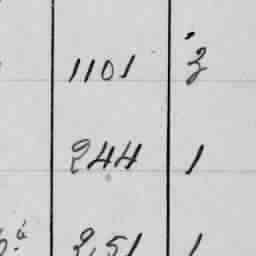 1101 3
244 1
251 1